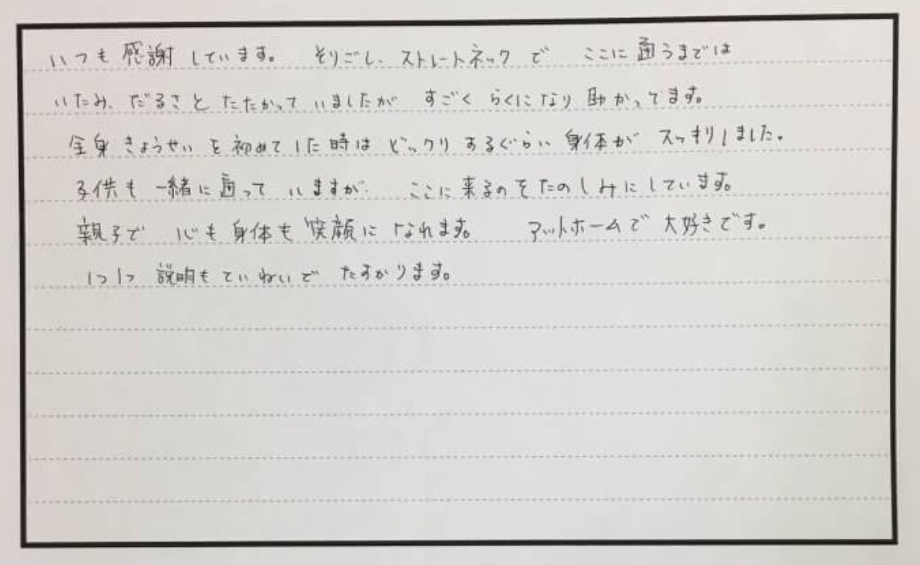 いつも感謝しています。 そりごし、ストレートネックで ここに通うまでは
いたみ、だるさとたたかっていましたが すごくらくになり助かってます。
全身きょうせいを初めてした時はビックリするぐらい身体がスッキリしました。
子供も一緒に通っていますが、 ここに来るのをたのしみにしています。
親子で 心も身体も笑顔になれます。 アットホームで大好きです。
1つ1つ説明もていねいでたすかります。